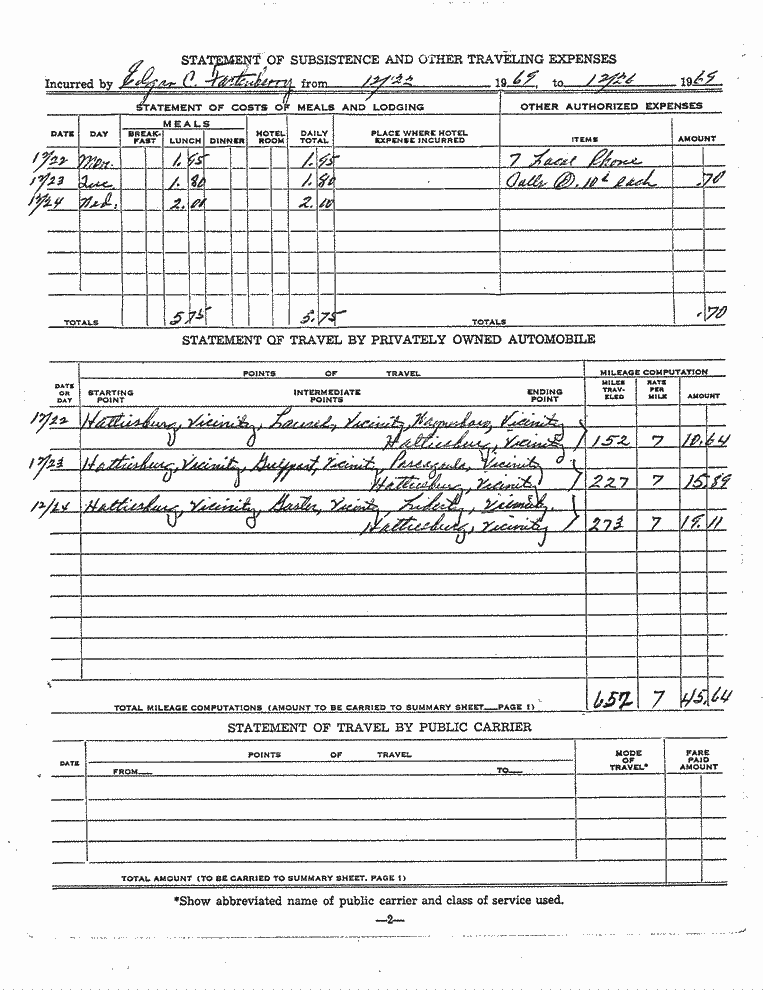 STATEMENT OF SUBSISTENCE AND OTHER TRAVELING EXPENSES
Incurred by Edgar C. Fortenberry from 12/22 1969, to 12/26 1969
STATEMENT OF COSTS OF MEALS AND LODGING OTHER AUTHORIZED EXPENSES
MEALS
DATE DAY BREAK-FAST LUNCH DINNER HOTEL ROOM DAILY TOTAL PLACE WHERE HOTEL EXPENSE INCURRED ITEMS AMOUNT
12/22 Mon. 1.95 1.95 7 Local Phone
12/23 Tue 1.80 1.80 Calls @ .10¢ each .70
12/24 Wed. 2.00 2.00
TOTALS 5 75 5.75 TOTALS .70
STATEMENT OF TRAVEL BY PRIVATELY OWNED AUTOMOBILE
POINTS OF TRAVEL MILEAGE COMPUTATION
DATE OR DAY STARTING POINT INTERMEDIATE POINTS ENDING POINT MILES TRAV-ELED RATE PER MILE AMOUNT
12/22 Hattiesburg, Vicinity, Laurel, Vicinity, Waynesboro, Vicinity
Hattiesburg, Vicinity 152 7 10.64
12/23 Hattiesburg, Vicinity, Gulfport, Vicinity, Pascagoula, Vicinity
Hattiesburg, Vicinity 227 7 15.89
12/24 Hattiesburg, Vicinity, Vicinity, Liberty, Vicinity.
Hattiesburg, Vicinity 273 7 19.11
TOTAL MILEAGE COMPUTATIONS (AMOUNT TO BE CARRIED TO SUMMARY SHEET—PAGE 1) 652 7 45.64
STATEMENT OF TRAVEL BY PUBLIC CARRIER
POINTS OF TRAVEL
DATE FROM— TO— MODE OF TRAVEL* FARE PAID AMOUNT
TOTAL AMOUNT (TO BE CARRIED TO SUMMARY SHEET, PAGE 1)
*Show abbreviated name of public carrier and class of service used.
—2—